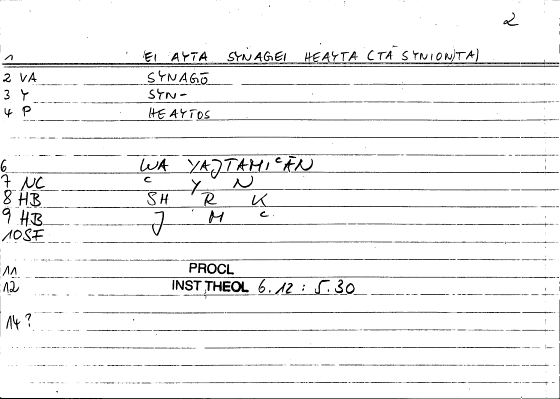 2
1 EI AYTA SYNAGEI HEAYTA (TÀ SYNIONTA)
2 VA SYNAGŌ
3 Y SYN-
4 P HEAYTOS
6 WA YAJTAMIᶜĀN
7 NC ᶜ Y N
8 HB SH R K
9 HB J M ᶜ
10 SF
11 PROCL
12 INST THEOL 6.12 : 5.30
14 ?